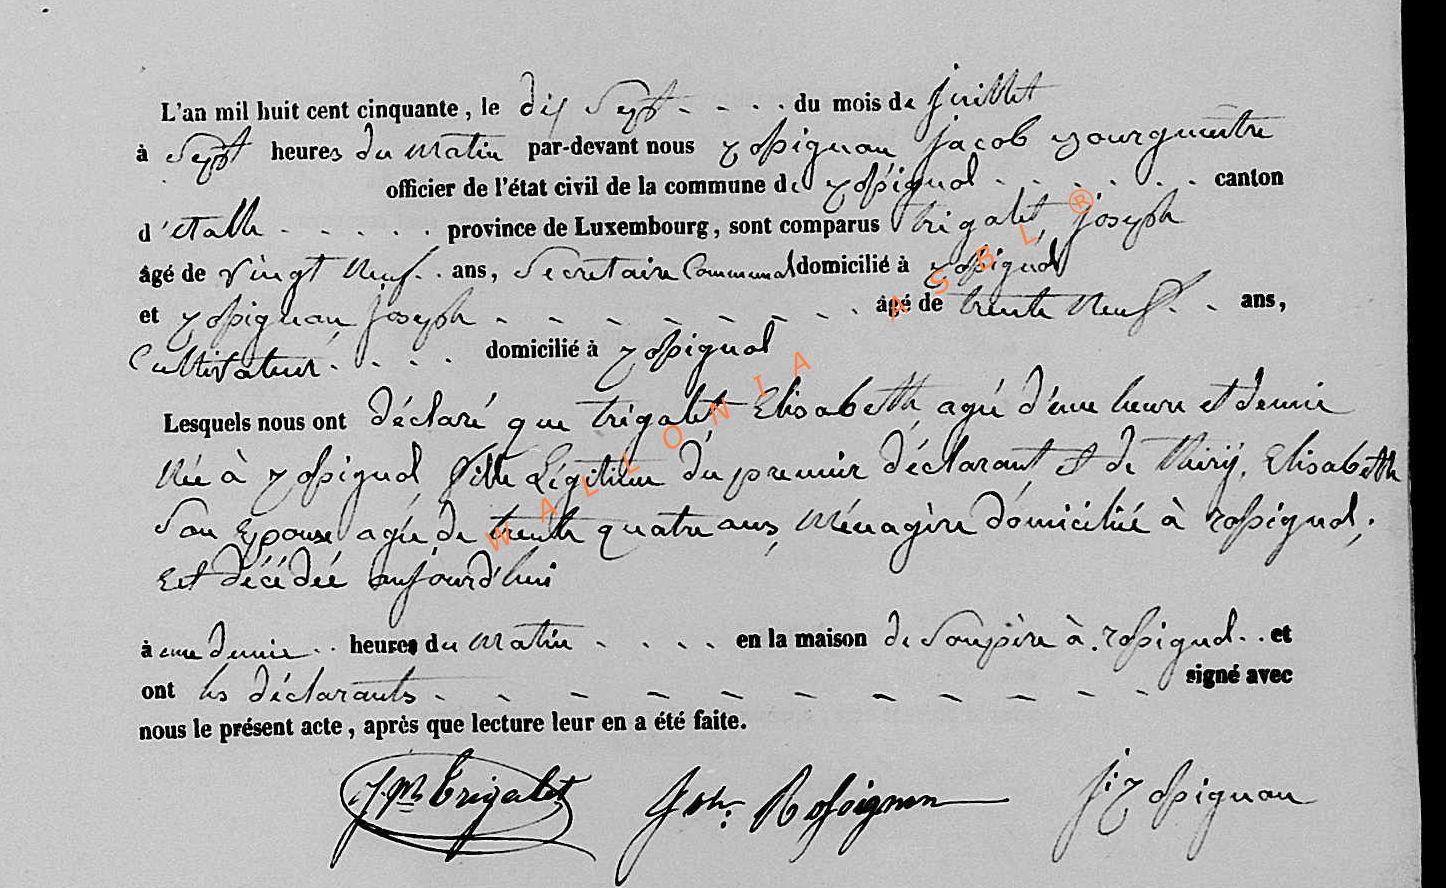 L'an mil huit cent cinquante, le dix sept - - - - du mois de juillet
à sept heures du matin par-devant nous rossignon jacob bourgmestre
officier de l'état civil de la commune de rossignol - - - - - - canton
d'etalle - - - - - province de Luxembourg, sont comparus trigalet, joseph
âgé de vingt neuf - - ans, Secretaire Communal domicilié à rossignol
et rossignon joseph - - - - - - - - - âgé de trente neuf - - ans,
Cultivateur - - - - domicilié à rossignol
Lesquels nous ont déclaré que trigalet Elisabeth agée d'une heure et demie
Née à rossignol fille Légitime du premier déclarant et de thiry, Elisabeth
Son Epouse agée de trente quatre ans, Ménagère domiciliée à rossignol;
Est décédée aujourd'hui
à une demie - - heures du matin - - - - en la maison de Son père à rossignol - - et
ont les déclarants - - - - - - - - - - - signé avec
nous le présent acte, après que lecture leur en a été faite.
J. ph Trigalet Jph: Rossignon j: rossignon
WALLONIA ASBL ®